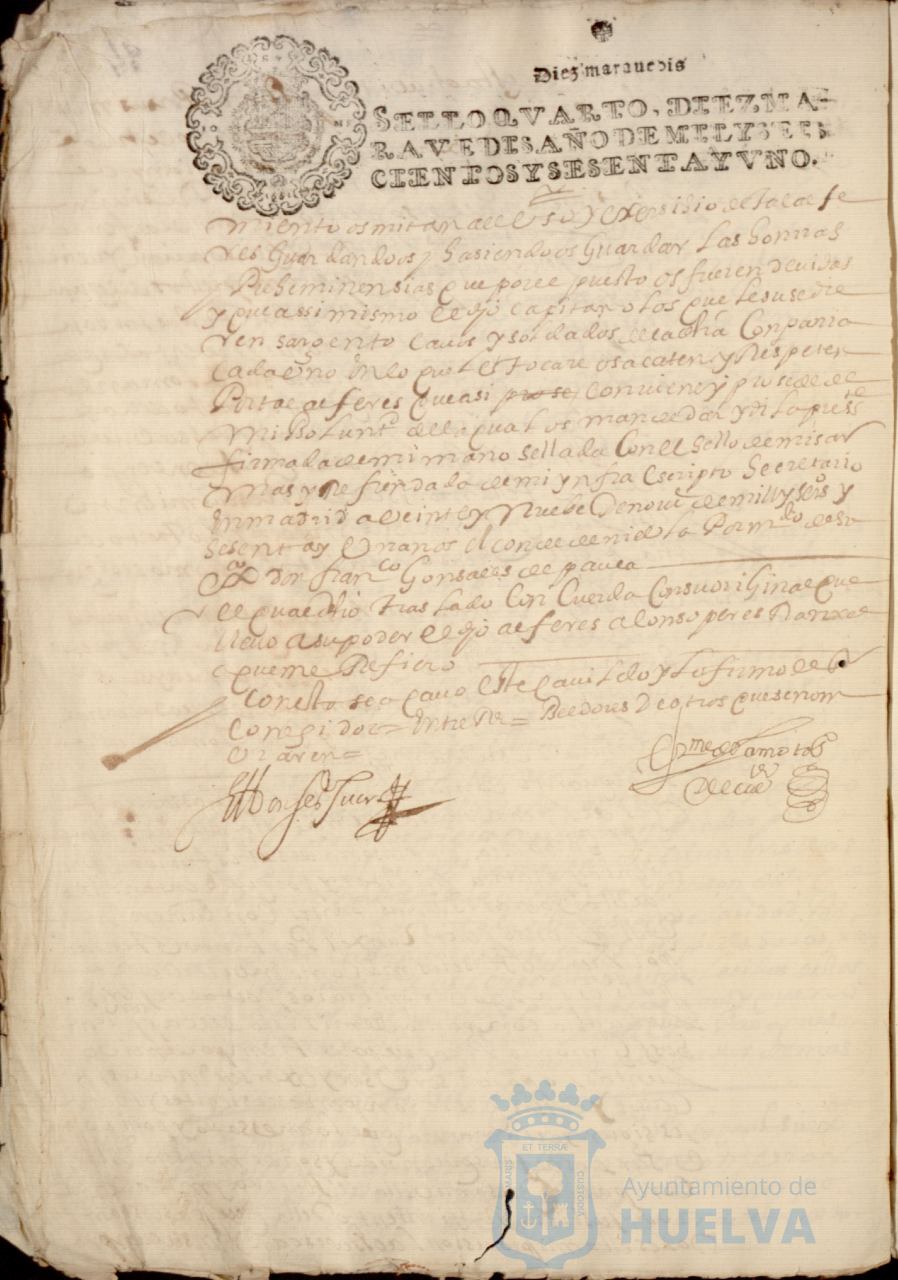 Diez marauedis
SELLO QVARTO, DIEZ MA-
RAVEDIS, AÑO DE MIL Y SEIS
CIENTOS Y SESENTA Y VNO.
miento os mitan al el uso y exersisio de tal alfe
res guardandoos y hasiendoos guardar las honrras
Preheminensias que por el puesto os fueren devidas
y que assi mismo el dho capitan o los que le susedie
ren sargento cauos y soldados de la dha Conpania
Cada uno en lo que les tocare os acaten y Respeten
Por tal alferes que asi conviene y prosede de
mi Boluntd de lo qual os mande dar y di la presste
firmada de mi mano sellada Con el sello de mis ar
mas y Refrendada de mi ynfra escripto Secretario
En madrid a Veinte y Nuebe De nove de mill y seiso y
sesenta y Un anos el conde de niebla Por mdo de su
exa don franco Gonsales de
el qual dho traslado Con Cuerda Con su original que
lleuo a su poder el dho alferes alonso peres
a que me Refiero
Con esto se acauo este cauildo y lo firmo el sr
Corregidor = Entre Rs = Beedores De otros que se nom
braren =